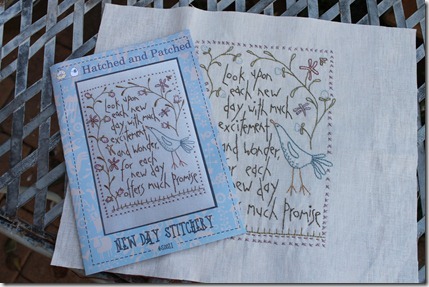 Hatched and Patched
look upon
each new
day, with much
excitement
and wonder,
for each
new day
offers much Promise
NEW DAY STITCHERY
look upon
each new
day, with much
excitement,
and wonder,
or each
new day
much Promise